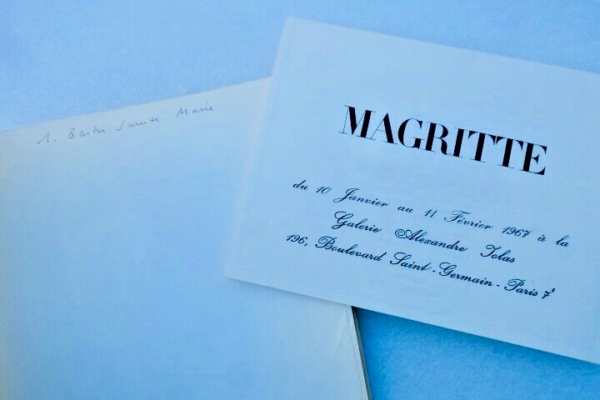 MAGRITTE
du 10 Janvier au 11 Février 1967 à la
Galerie Alexandre Iolas
196, Boulevard Saint-Germain - Paris 7e